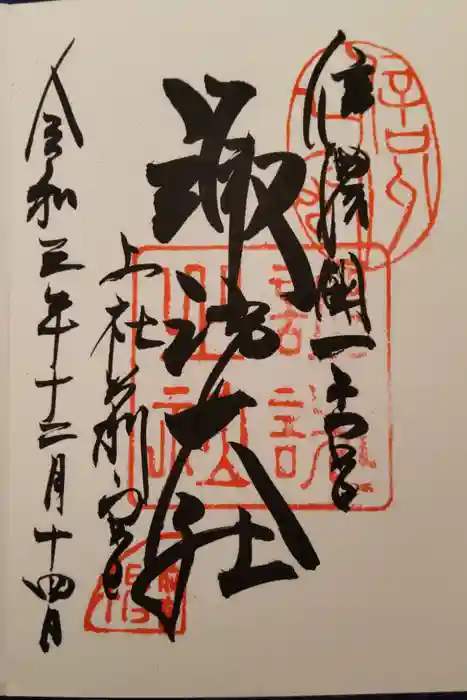 信濃國一之宮
諏訪大社
上社前宮
令和三年十二月十四日